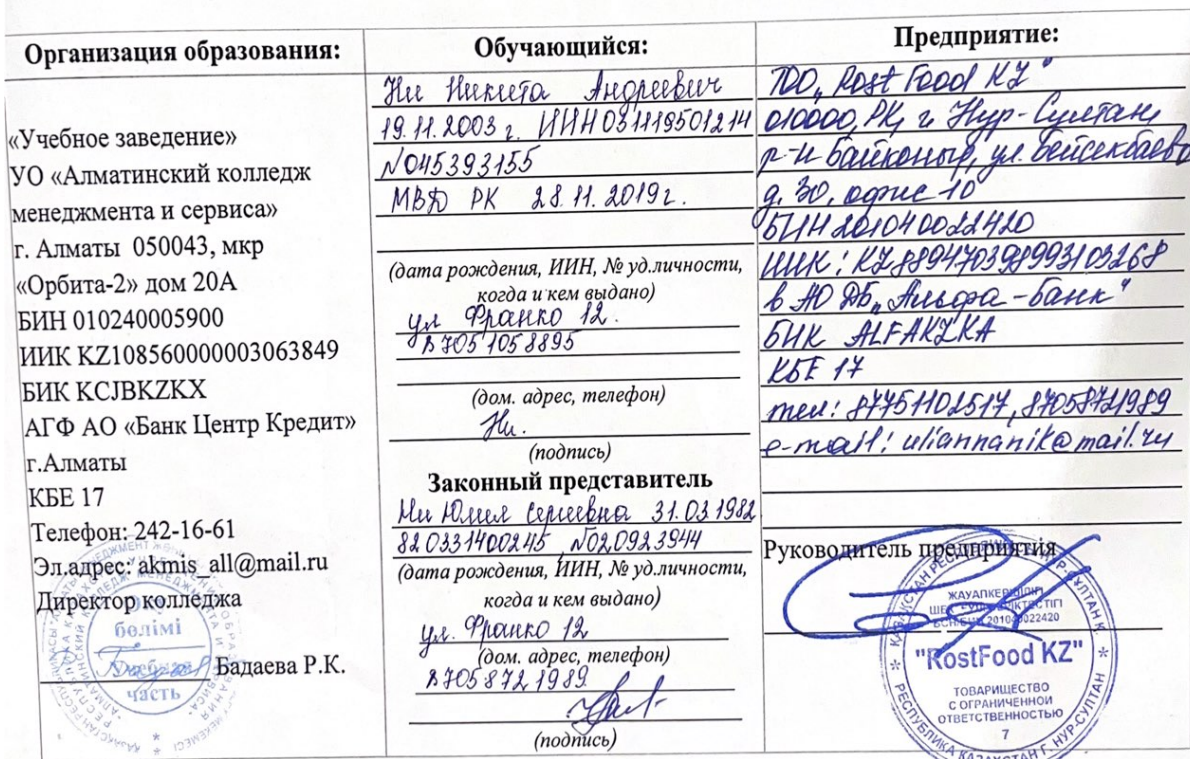 Организация образования:
«Учебное заведение»
УО «Алматинский колледж
менеджмента и сервиса»
г. Алматы 050043, мкр
«Орбита-2» дом 20А
БИН 010240005900
ИИК KZ108560000003063849
БИК KCJBKZKX
АГФ АО «Банк Центр Кредит»
г.Алматы
КБЕ 17
Телефон: 242-16-61
Эл.адрес: akmis_all@mail.ru
Директор колледжа
Бадаева Р.К.
Оқу
бөлімі
Учебная
часть
Обучающийся:
Ни Никита Андреевич
19.11.2003 г. ИИН 031119501214
N045393155
МВД РК 28.11.2019г.
(дата рождения, ИИН, № уд.личности,
когда и кем выдано)
ул Франко 12.
87051058895
(дом. адрес, телефон)
Ни.
(подпись)
Законный представитель
Ни Юлия Сергеевна 31.03.1982
820331400245, N020923944
(дата рождения, ИИН, № уд.личности,
когда и кем выдано)
ул. Франко 12
(дом. адрес, телефон)
87058721989
(подпись)
Предприятие:
ТОО „Rost Food KZ"
010000, РК, г. Нур-Султан,
р-н Байконыр, ул. Бейсекбаева
д. 30, офис 10
БИН 201040022420
ИИК: KZ889470398993103268
в АО ДБ „Альфа-Банк"
БИК ALFAKZKA
КБЕ 17
тел: 87751102517, 87058721989
e-mail: uliannanik@mail.ru
Руководитель предприятия
ЖАУАПКЕРШІЛІГІ
ШЕКТЕУЛІ СЕРІКТЕСТІГІ
БСН/БИН 201040022420
"RostFood KZ"
ТОВАРИЩЕСТВО
С ОГРАНИЧЕННОЙ
ОТВЕТСТВЕННОСТЬЮ
7
РЕСПУБЛИКА КАЗАХСТАН Г. НУР-СУЛТАН